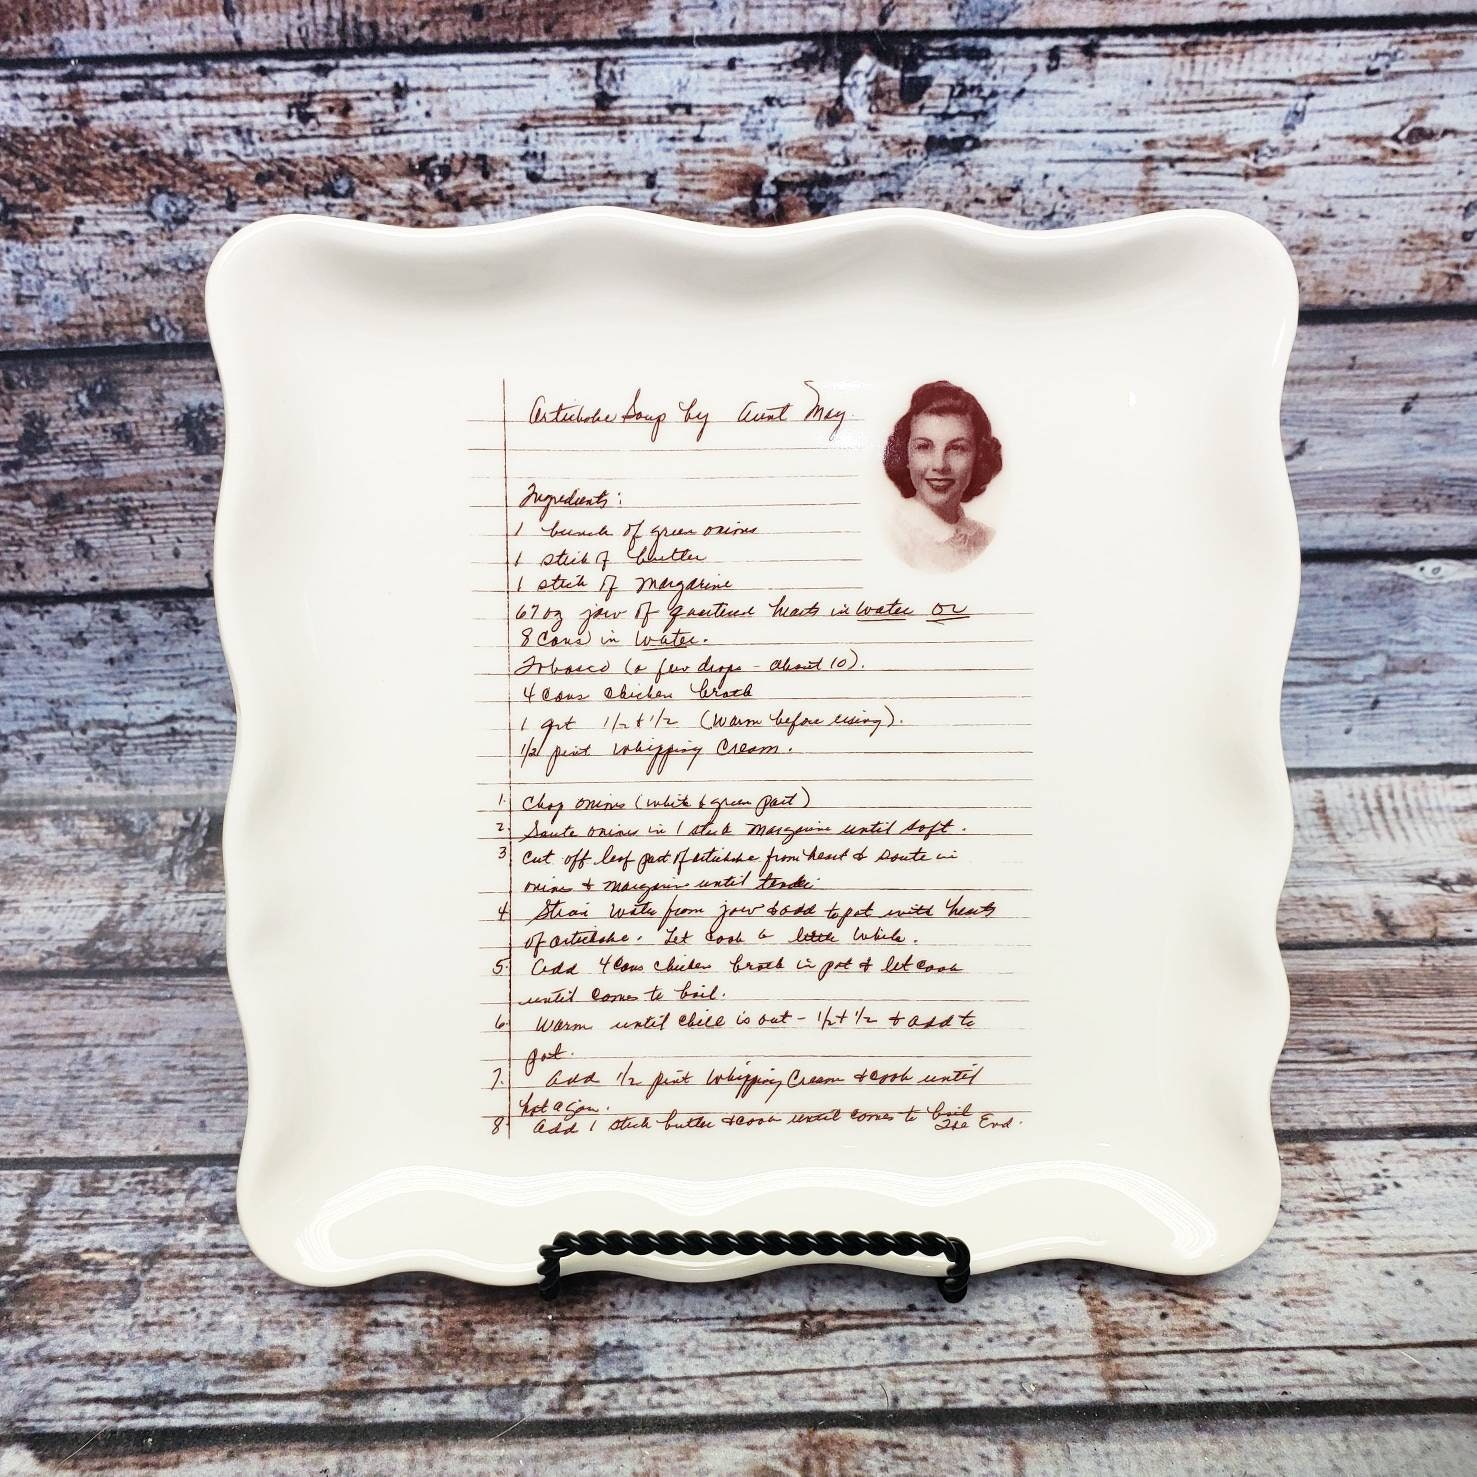 Artichoke Soup by Aunt May.
Ingredients:
1 bunch of green onions
1 stick of butter
1 stick of margarine
67 oz jar of quartered hearts in water or
8 cans in water.
Tobasco (a few drops - about 10).
4 cans chicken broth
1 qrt 1/2 + 1/2 (warm before using).
1/2 pint whipping cream.
1. Chop onions (white & green part)
2. Saute onions in 1 stick margarine until soft.
3 Cut off leaf part of artichoke from heart & saute in
onions & margarine until tender
4 Strain water from jar & add to pot with hearts
of artichoke. Let cook a little while.
5. Add 4 cans chicken broth in pot & let cook
until comes to boil.
6. Warm until chill is out - 1/2 + 1/2 & add to
pot.
7. Add 1/2 pint whipping cream & cook until
hot again.
8. Add 1 stick butter & cook until comes to boil
The End.